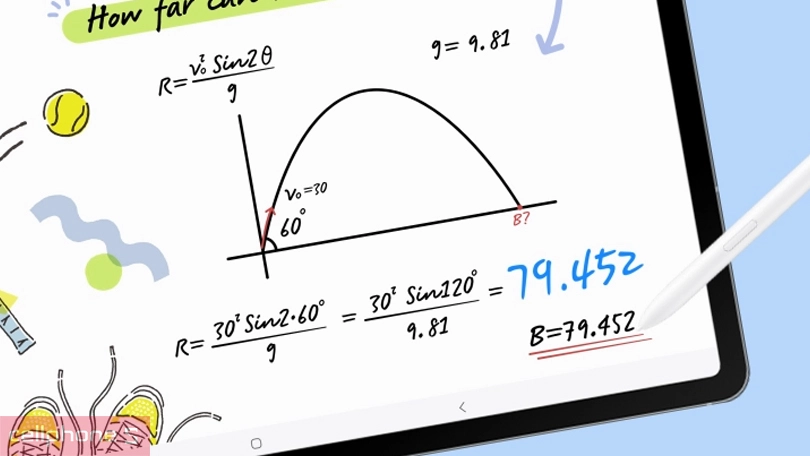 How far can
R = v₀² Sin2θ / g
g = 9.81
v₀=30
60°
B?
R = 30² Sin2·60° / g = 30² Sin120° / 9.81 = 79.452
B=79.452
cellphones